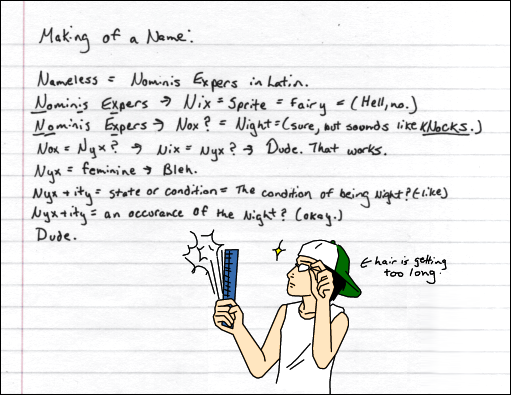 Making of a Name:
Nameless = Nominis Expers in Latin.
Nominis Expers → Nix = Sprite = Fairy = (Hell, no.)
Nominis Expers → Nox? = Night = (sure, but sounds like KNocks.)
Nox = Nyx? → Nix = Nyx? → Dude. That works.
Nyx = feminine → Bleh.
Nyx + ity = state or condition = The condition of being Night? (I like)
Nyx + ity = an occurance of the Night? (okay.)
Dude.
← hair is getting
too long.